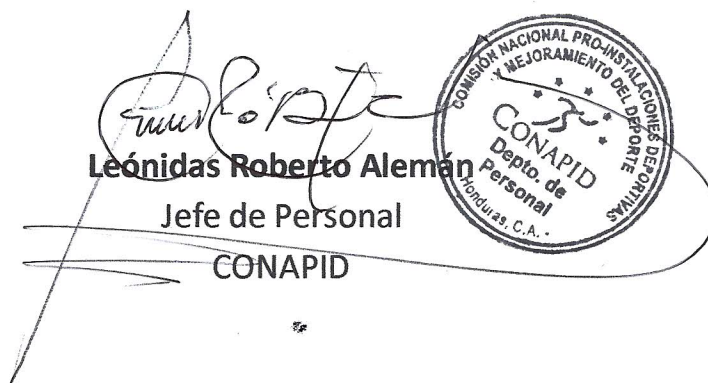 Leónidas Roberto Alemán
Jefe de Personal
CONAPID
COMISIÓN NACIONAL PRO-INSTALACIONES DEPORTIVAS
Y MEJORAMIENTO DEL DEPORTE
CONAPID
Depto. de
Personal
Honduras, C.A. -